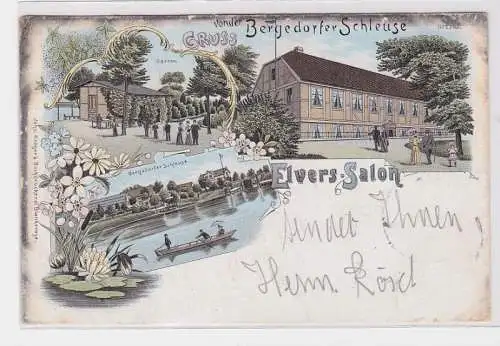 Gruss
von der Bergedorfer Schleuse
Garten
Bergedorfer Schleuse
Elvers-Salon
sendet Ihnen
Herrn Rösch